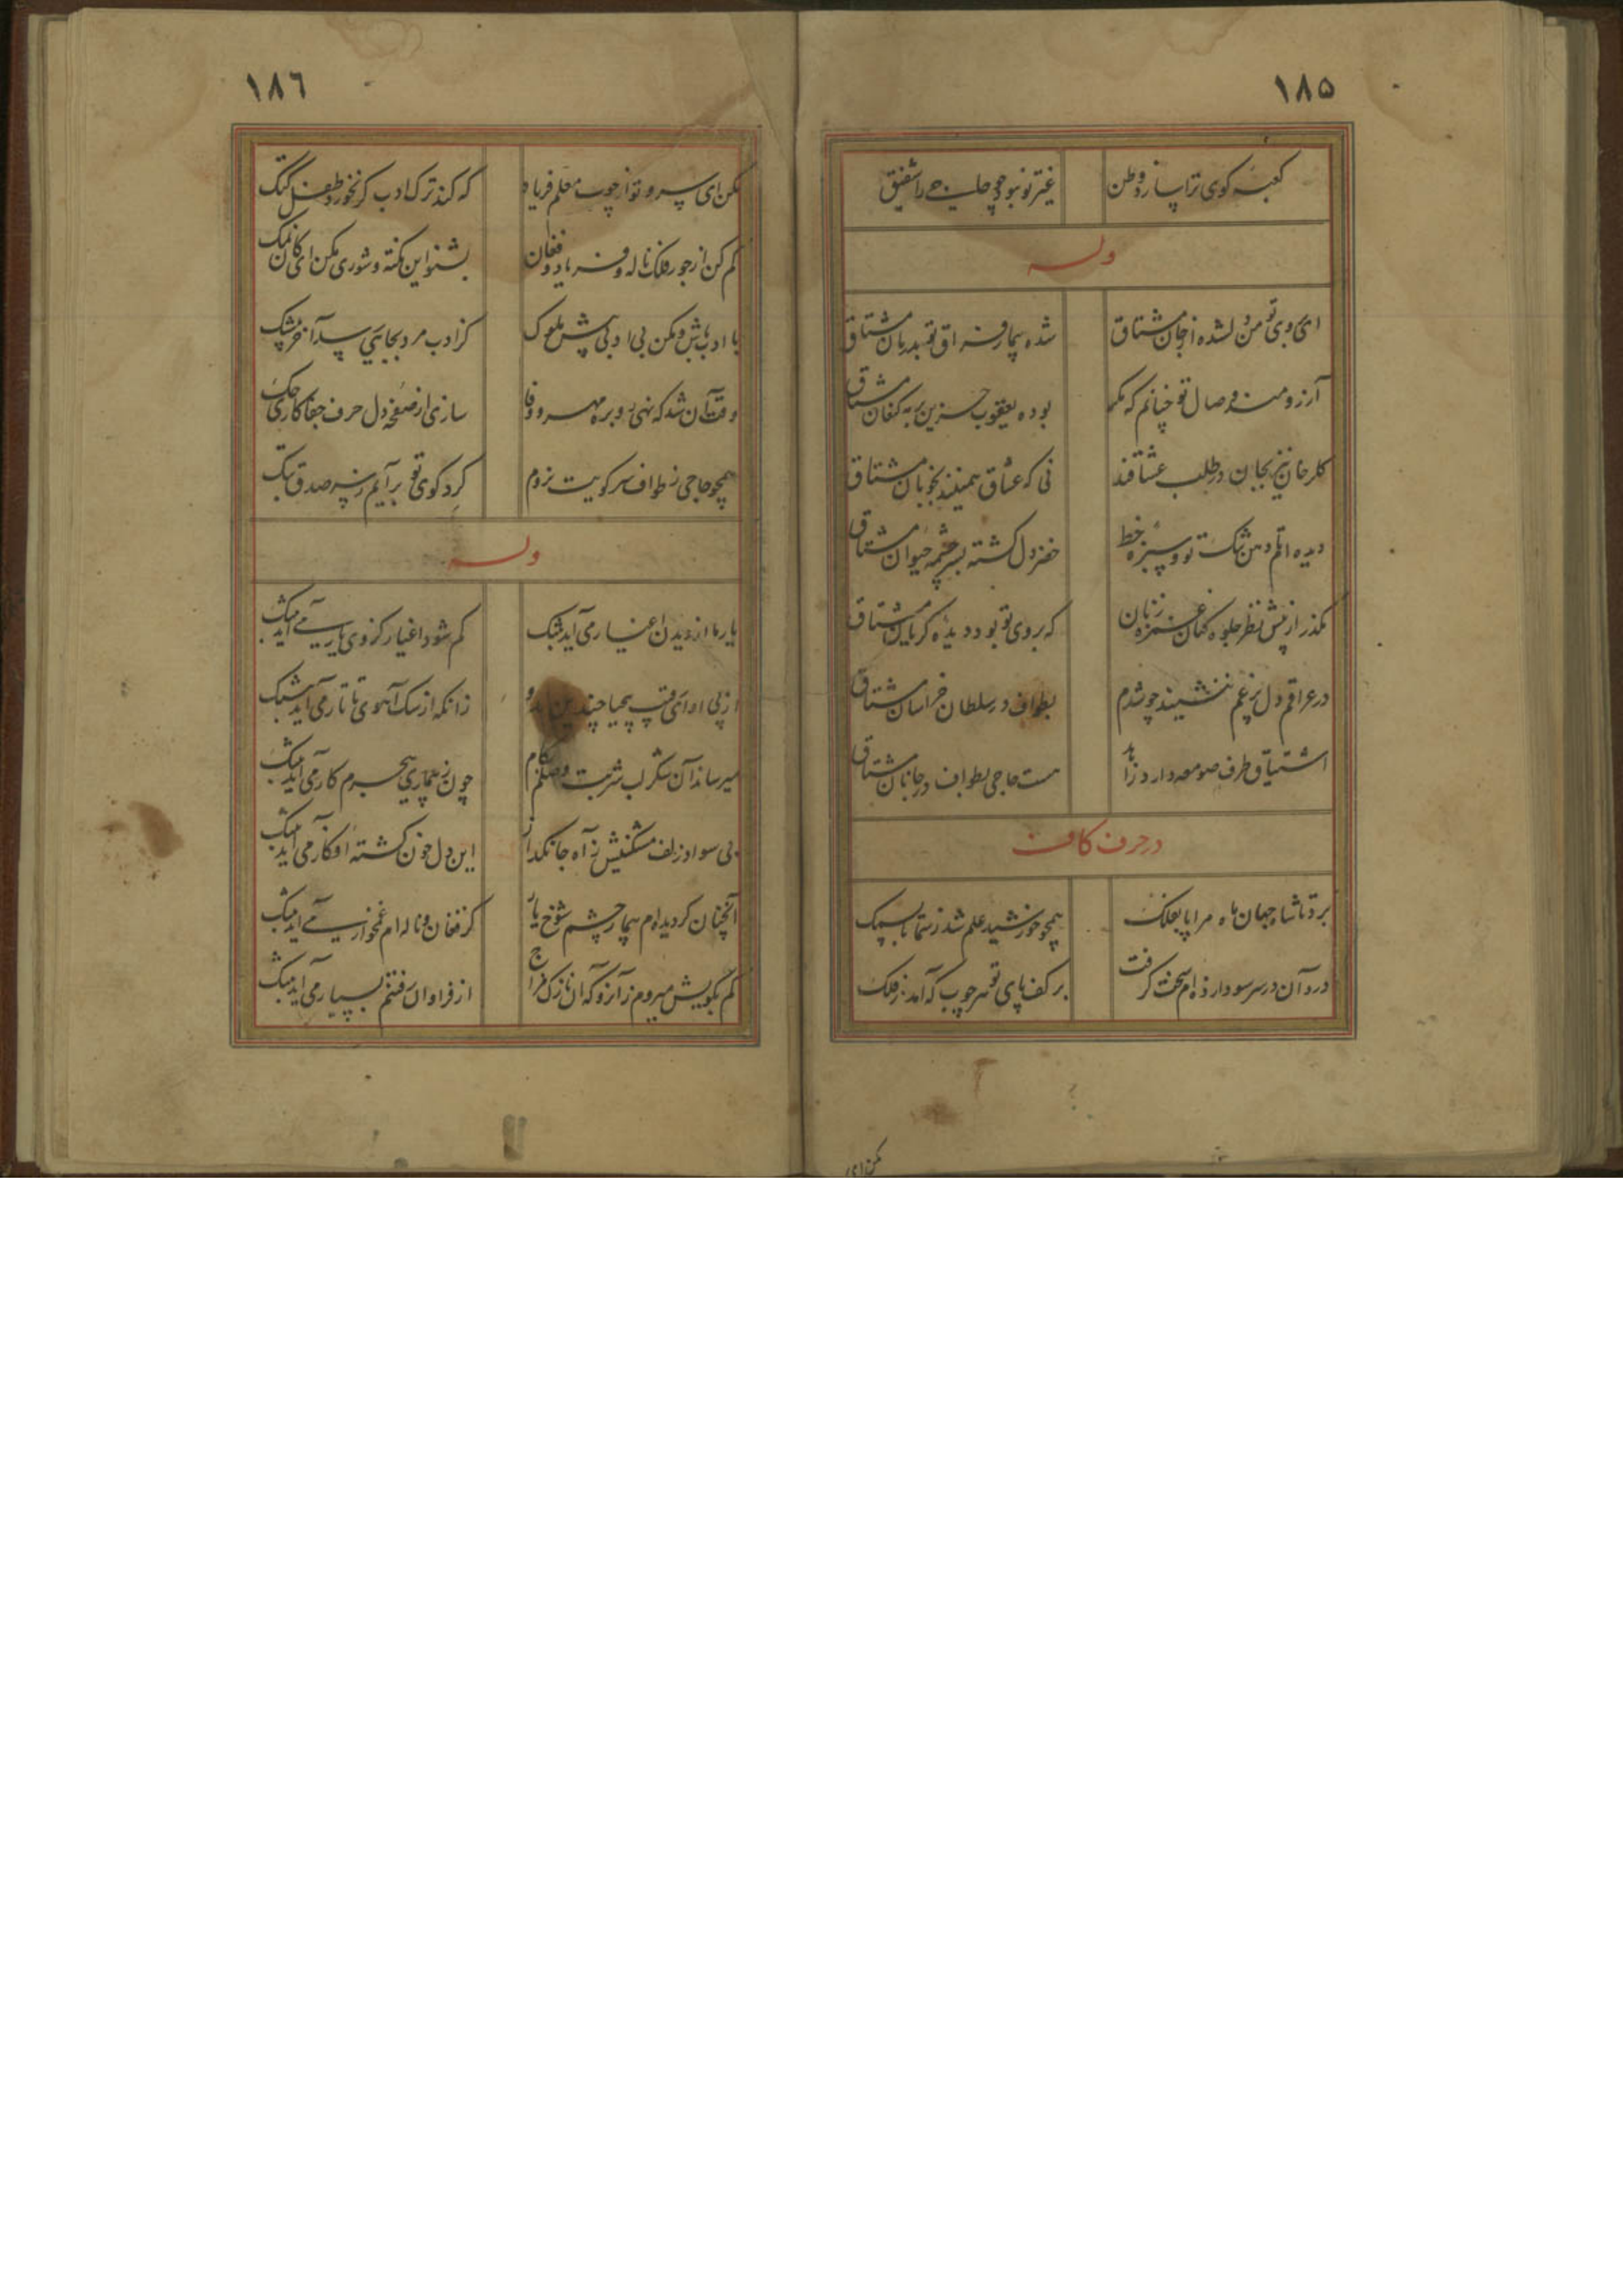 ۱۸۵
کعبه کوی ترا ساز وطن غیر تو نبود حاجی را شفیق
وله
ای بروی تو من دلشده از جان مشتاق شده بیمار فراق تو بدرمان مشتاق
آرزومند وصال تو چنانم که مگر بوده یعقوب حزین به کنعان مشتاق
گلرخان نیز بجان در طلب عشاقند نی که عشاق همینند بخوبان مشتاق
دیده‌ام دهن تنگ تو و سبزه خط خضر دل گشته بسرچشمه حیوان مشتاق
بگذر از پیش نظر جلوه کنان غمزه زنان که بروی تو بود دیده گریان مشتاق
در عراقم دل پر غم ننشیند چو شدم بطواف در سلطان خراسان مشتاق
اشتیاق طرف صومعه دارد زاهد هست حاجی بطواف در جانان مشتاق
در حرف کاف
برد تا شاه جهان ماه مرا پا بفلک همچو خورشید علم شد ز سما تا بسمک
درد آن در سر سودا زده‌ام سخت گرفت بر کف پای تو هر چوب که آمد ز فلک
مکن ای
۱۸۶
مکن ای سرو تو از چوب معلم فریاد که کند ترک ادب گر نخورد طفل کتک
کم کن از جور فلک ناله و فریاد و فغان بشنو این نکته و شوری مکن ای کان نمک
با ادب باش و مکن بی ادبی پیش ملوک کز ادب مرد بجایی رسد آخر
وقت آن شد که نهی رو بره مهر و وفا سازی از صفحه دل حرف جفاکاری حک
همچو حاجی ز طواف سر کویت نروم گرد کوی تو برآیم ز سر صدق بتک
وله
یار ما از دیدن اغیار می آید بتنگ کم شود اغیار کز وی یار می آید بتنگ
از پی او ای رقیب بیحیا چندین مدو زانکه از سگ آهوی تاتار می آید بتنگ
میرساند آن شکر لب شربت وصلم بکام چون ز بیماری هجرم کار می آید بتنگ
بی سواد زلف مشکینش ز آه جانگداز این دل خون گشته افکار می آید بتنگ
آنچنان گردیده‌ام بیمار چشم شوخ یار کز فغان و ناله‌ام غمخوار می آید بتنگ
کم بکویش میروم ز آنرو که آن نازک مزاج از فراوان رفتنم بسیار می آید بتنگ